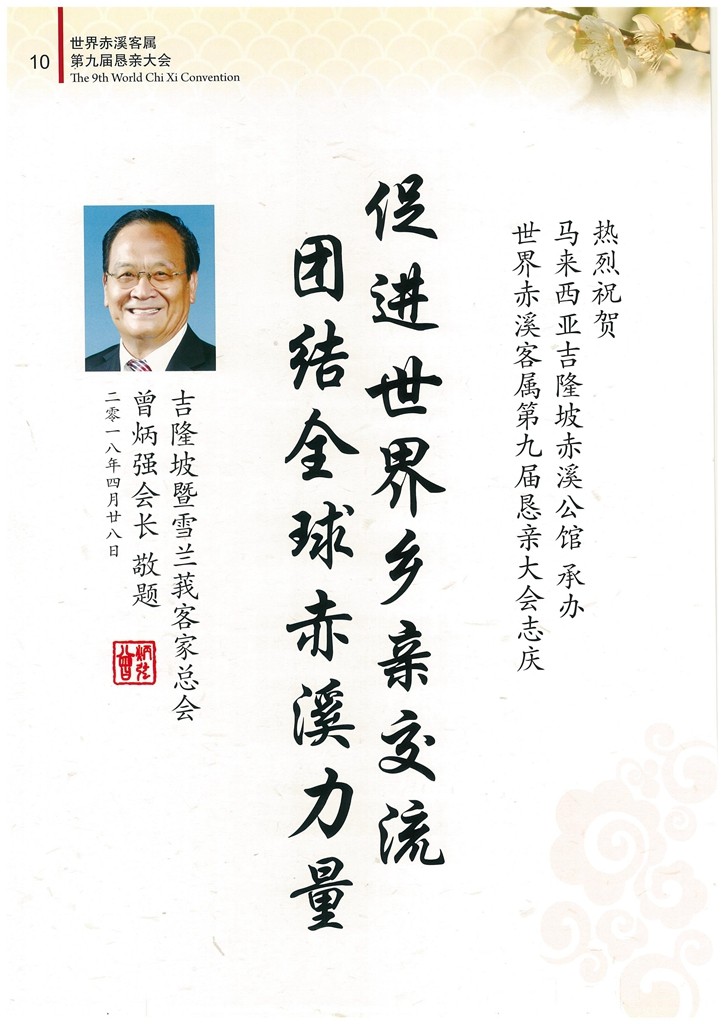 10
世界赤溪客属
第九届恳亲大会
The 9th World Chi Xi Convention
热烈祝贺
马来西亚吉隆坡赤溪公馆 承办
世界赤溪客属第九届恳亲大会志庆
促进世界乡亲交流
团结全球赤溪力量
吉隆坡暨雪兰莪客家总会
曾炳强会长 敬题
二零一八年四月廿八日